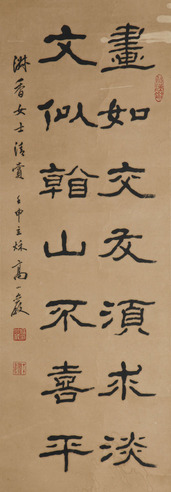 畫如交友須求淡
文似看山不喜平
淋香女士清賞
壬申立秌高一歲